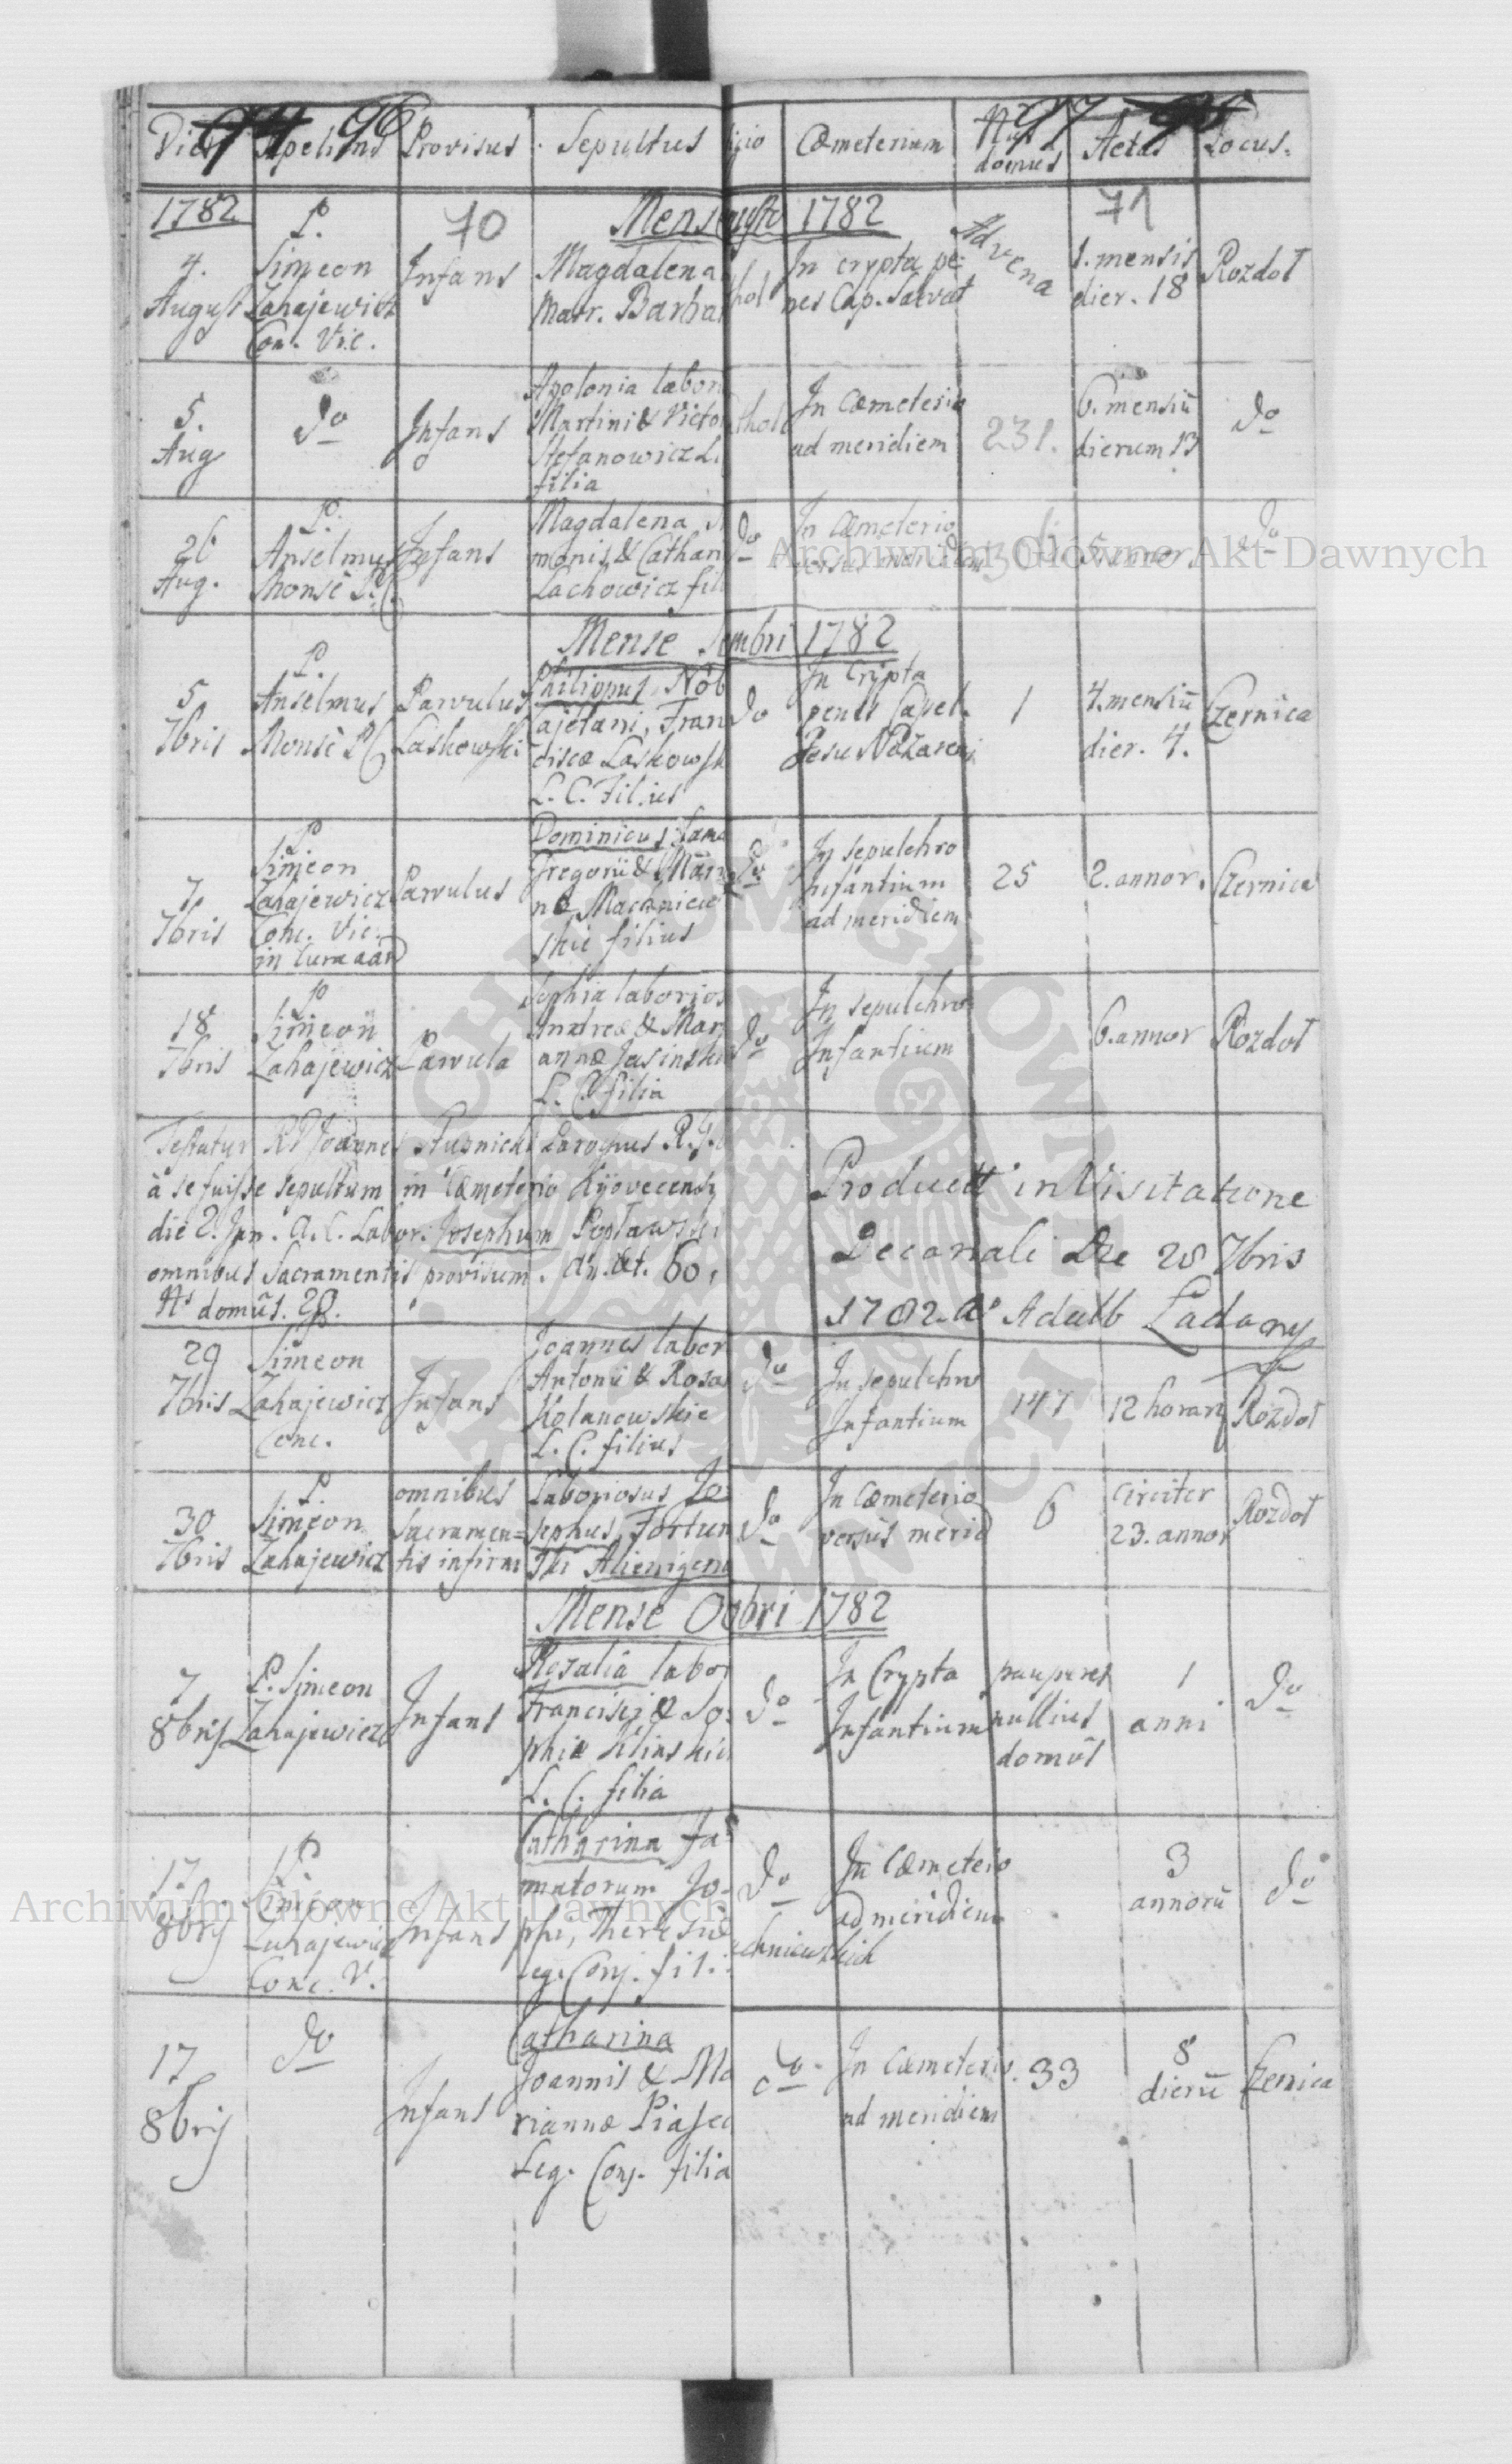 94 96
97 95
Dies Sepeliens Provisus Sepultus igio Cœmeterium Nrus domus Aetas Locus.
1782 70 Mense Augusto 1782 71
4. August
P. Simeon Zahajewicz Con. Vic.
Infans
Magdalena
Matr. Barbar
thol
In crypta pe
nes Cap. Salvat
Advena
1. mensis
dier. 18
Rozdoł
5. Aug
do
Infans
Apolonia labor
Martini & Victo
Stefanowicz L.
filia
thol
In Cœmeterio
ad meridiem
231.
6. mensiū
dierum 13
do
26 Aug.
P. Anselmus Monsè
Infans
Magdalena, Si
monis & Cathar
Lachowicz fili
do
In Cœmeterio
versus meridiem
5 annor.
do
Mense 7mbri 1782
5 7bris
P. Anselmus Monsè
Parvulus
Laskowski
Philippus, Nob
Cajetani, Fran
ciscæ Laskowsk
L. C. Filius
do
In Cripta
penes Capel.
Jesu Nazareni
1
4. mensiū
dier. 4.
Czernica
7 7bris
P. Simeon Zahajewicz Conc. Vic.
Parvulus
Dominicus fama
Gregorii & Mari
næ
skie filius
do
In sepulchro
Infantium
ad meridiem
25
2. annor.
Czernica
18 7bris
P Simeon Zahajewicz
Parvula
Sophia laborios
Andreæ & Mari
annæ Jasinskie
L. C. filia
do
In sepulchro
Infantium
6. annor
Rozdoł
Testatur RP Joannes
à se fuisse sepultum in Cœmeterio Kijovecensi
die 2. Jun. A. C. Labor. Josephum Popławski
omnibus Sacramentis provisum. An. æt. 60,
Ns domûs. 28.
Product in Visitatione
Decanali Die 28 7bris
1782. Ao Adalb Ladany
29 7bris
Simeon Zahajewicz Conc.
Infans
Joannes labor
Antonii & Rosa
Kolanowskie
L. C. filius
do
In sepulchro
Infantium
147
12 horarū
Rozdoł
30 7bris
P Simeon Zahajewicz
omnibus
sacramen=
tis infirm
Laboriosus Jo
sephus, Fortun
Alienigena
do
In Cœmeterio
versùs merid
6
circiter
23. annor
Rozdoł
Mense 8bri 1782
7 8bris
P. Simeon Zahajewicz
Infans
Rosalia labor
Francisci & So=
phiæ Klinskie
L. C. filia
do
In Crypta
Infantium
pauperes
nullius
domûs
1
anni
do
17. 8bris
P. Simeon Zahajewicz Conc. V.
Infans
Catharina Fa=
matorum Jo=
phi, Theresiæ
Leg. Conj. fil.
do
In Cœmeterio
ad meridiem
echniewskich
3
annorū
do
17 8bris
do
Infans
Catharina
Joannis & Ma
riannæ Piasec
Leg. Conj. filia
do
In Cœmeterio.
ad meridiem
33
8
dierū
Czernica
Archiwum Główne Akt Dawnych
Archiwum Główne Akt Dawnych
ARCHIWUM GŁÓWNE AKT DAWNYCH